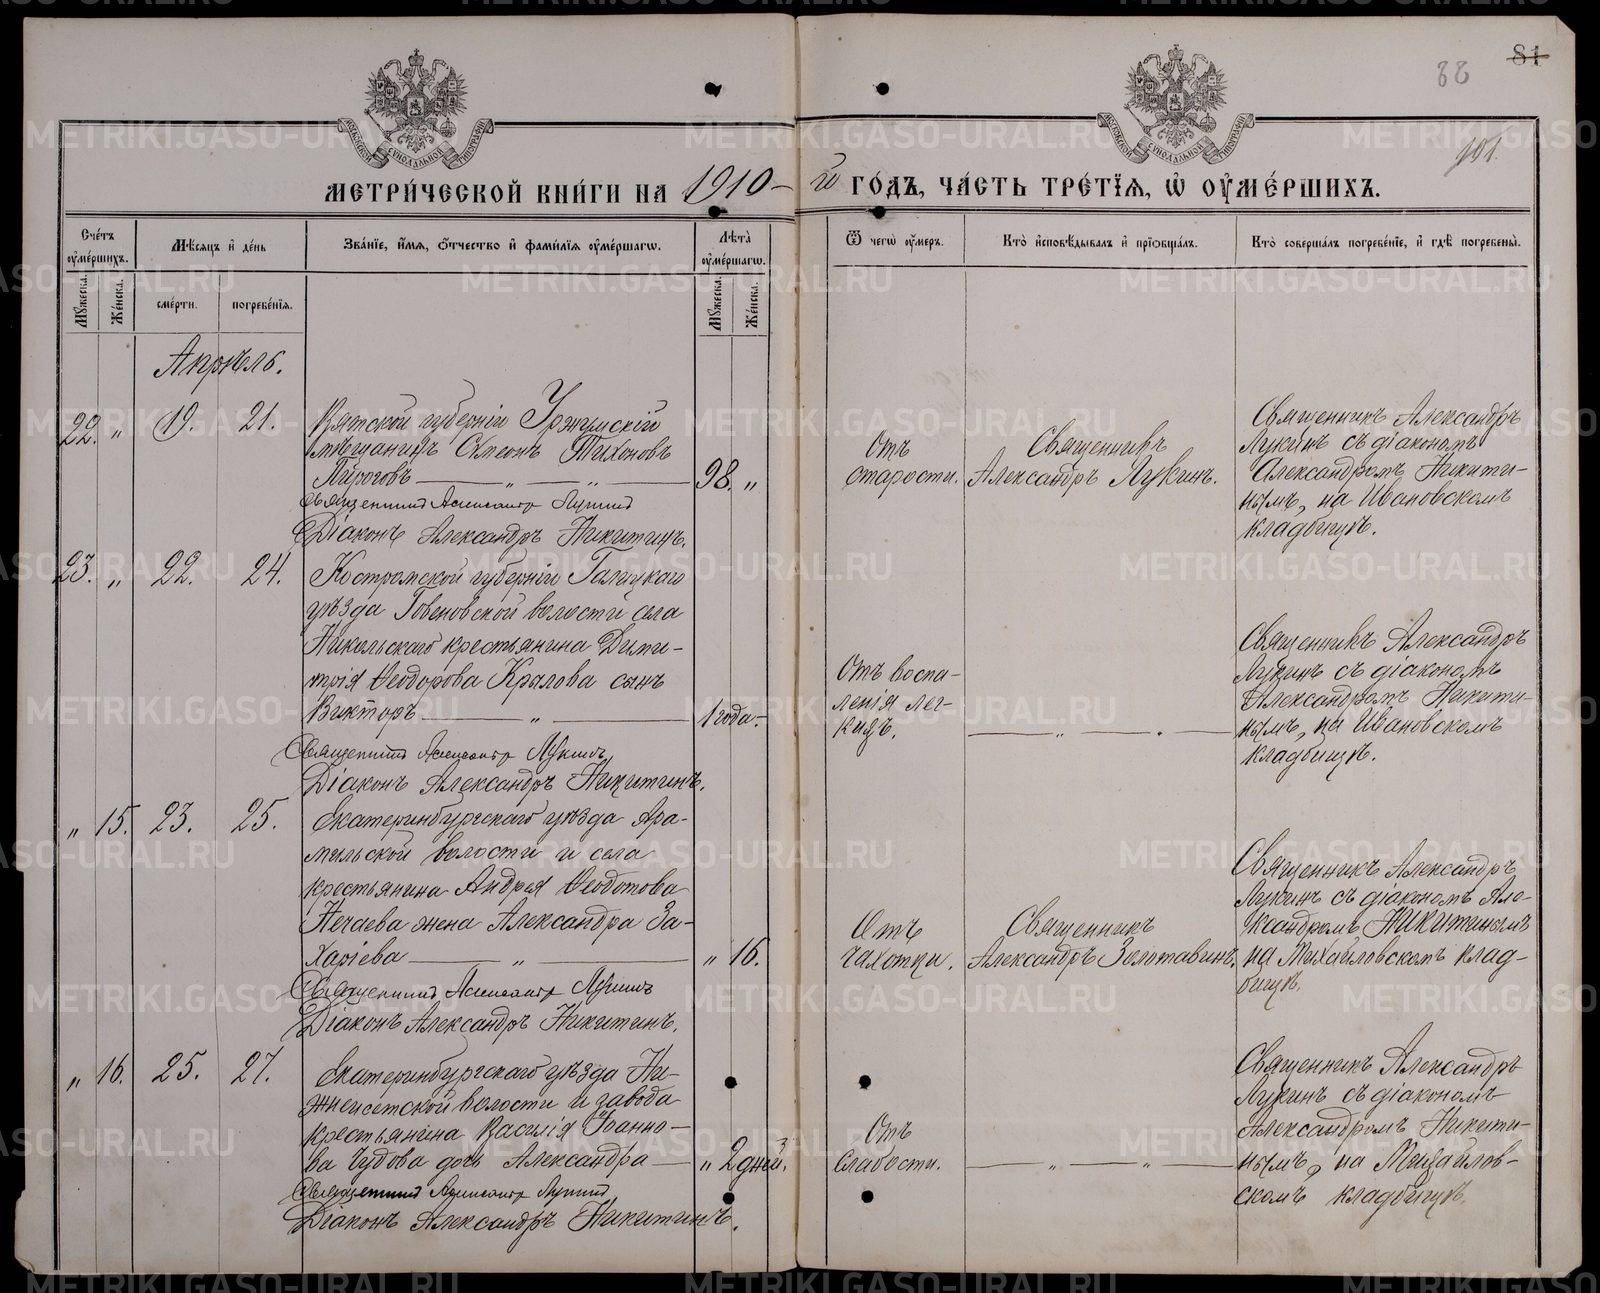 81
88
101.
МЕТРИ́ЧЕСКОЙ КНИ́ГИ НА 1910-й ГО́ДЪ, ЧА́СТЬ ТРЕ́ТІѦ, Ѽ ОУ҆МЕ́РШИХЪ.
Сче́тъ оу҆ме́ршихъ.
Мꙋжеска.
Же́нска.
Мѣ́сѧцъ и҆ де́нь
сме́рти.
погребе́нїѧ.
Зва́нїе, и҆́мѧ, ѻ҆́тчество и҆ фами́лїѧ оу҆ме́ршагѡ.
Лѣ́та оу҆ме́ршагѡ.
Мꙋжеска.
Же́нска.
Ѿ чегѡ̀ оу҆́меръ.
Кто̀ и҆сповѣ́дывалъ и҆ прїѡбща́лъ.
Кто̀ соверша́лъ погребе́нїе, и҆ гдѣ̀ погребены̀.
Апрѣль.
22. „ 19. 21.
Вятской губерніи Уржумскій
мѣщанинъ Симеонъ Тихоновъ
Пироговъ — „ — „ — 98. „
Священникъ Александръ Лукинъ
Діаконъ Александръ Никитинъ.
Отъ
старости.
Священникъ
Александръ Лукинъ.
Священникъ Александръ
Лукинъ съ діакономъ
Александромъ Никити-
нымъ, на Ивановскомъ
кладбищѣ.
23. „ 22. 24.
Костромской губерніи Галицкаго
уѣзда Говеновской волости села
Никольскаго крестьянина Дими-
трія Ѳеодорова Крылова сынъ
Викторъ — „ — 1 года. -
Священникъ Александръ Лукинъ
Діаконъ Александръ Никитинъ.
Отъ воспа-
ленія лег-
кихъ.
— „ — „ —
Священникъ Александръ
Лукинъ съ діакономъ
Александромъ Никити-
нымъ, на Ивановскомъ
кладбищѣ.
„ 15. 23. 25.
Екатеринбургскаго уѣзда Ара-
мильской волости и села
крестьянина Андрея Ѳеодотова
Нечаева жена Александра За-
харіева — „ — „ 16.
Священникъ Александръ Лукинъ
Діаконъ Александръ Никитинъ.
Отъ
чахотки.
Священникъ
Александръ Золотавинъ.
Священникъ Александръ
Лукинъ съ діакономъ Але-
ксандромъ Никитинымъ
на Михайловскомъ клад-
бищѣ.
„ 16. 25. 27.
Екатеринбургскаго уѣзда Ни-
жнеисетской волости и завода
крестьянина Василія Іоанно-
ва Чудова дочь Александра — „ 2 дней.
Священникъ Александръ Лукинъ
Діаконъ Александръ Никитинъ.
Отъ
слабости.
— „ — „ —
Священникъ Александръ
Лукинъ съ діакономъ
Александромъ Никити-
нымъ, на Михайлов-
скомъ кладбищѣ.
METRIKI.GASO-URAL.RU